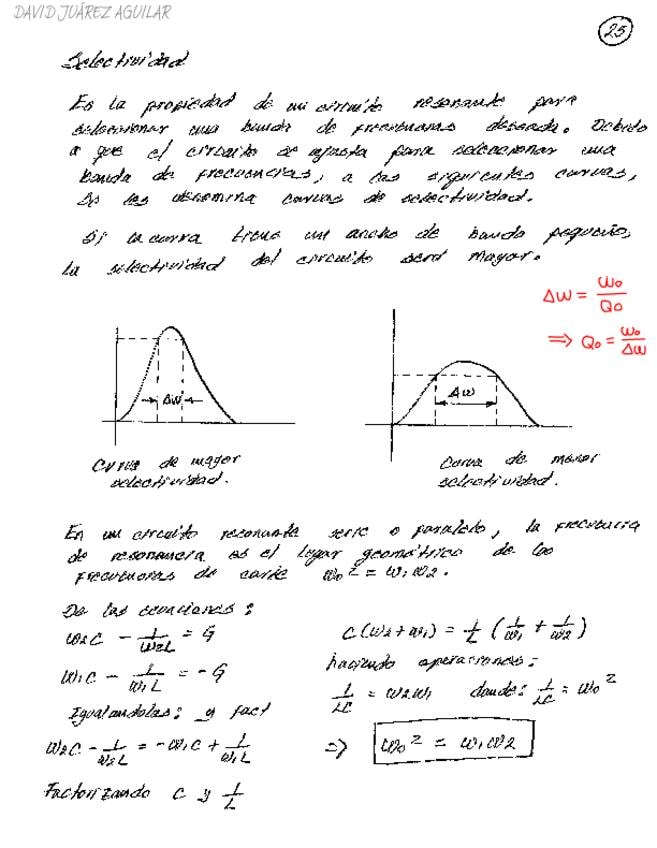 DAVID JUÁREZ AGUILAR
25
Selectividad
Es la propiedad de un circuito resonante para
seleccionar una banda de frecuencias deseada. Debido
a que el circuito se ajusta para seleccionar una
banda de frecuencias, a las siguientes curvas,
se les denomina curvas de selectividad.
Si la curva tiene un ancho de banda pequeño,
la selectividad del circuito será mayor.
Δw = wo/Qo
⇒ Qo = wo/Δw
Δw
Δw
Curva de mayor
selectividad.
Curva de menor
selectividad.
En un circuito resonante serie o paralelo, la frecuencia
de resonancia es el lugar geométrico de las
frecuencias de corte wo² = w1w2.
De las ecuaciones:
w2C - 1/w2L = G
w1C - 1/w1L = -G
Igualandolas: y fact
w2C - 1/w2L = -w1C + 1/w1L
Factorizando C y 1/L
C(w2+w1) = 1/L (1/w1 + 1/w2)
haciendo operaciones:
1/LC = w2w1 donde: 1/LC = wo²
⇒ wo² = w1w2